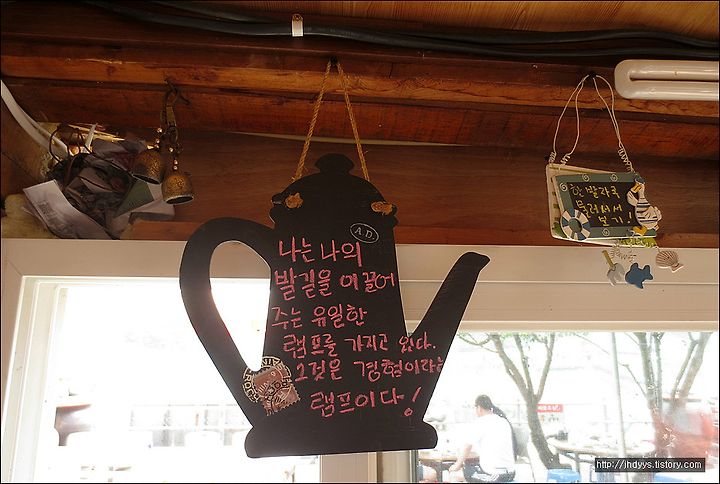 A.D.
나는 나의
발길을 이끌어
주는 유일한
램프를 가지고 있다.
그것은 경험이라는
램프이다!
한 발자국
물러서서
보기!
http://jhdyys.tistory.com